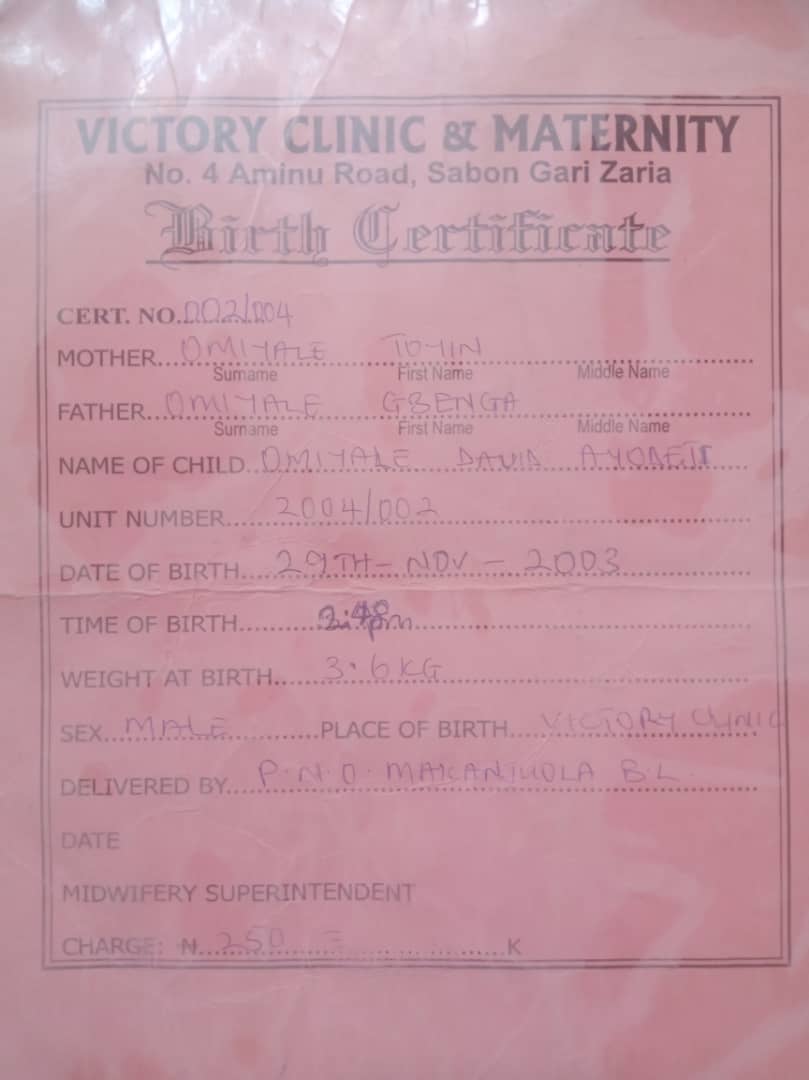 VICTORY CLINIC & MATERNITY
No. 4 Aminu Road, Sabon Gari Zaria
Birth Certificate
CERT. NO. 002/004
MOTHER... OMIYALE TOYIN
Surname First Name Middle Name
FATHER... OMIYALE GBENGA
Surname First Name Middle Name
NAME OF CHILD.. OMIYALE DAVID AYODEJI
UNIT NUMBER..... 2004/002
DATE OF BIRTH.... 29TH - NOV - 2003
TIME OF BIRTH......... pm
WEIGHT AT BIRTH..... 3.6KG
SEX... MALE ...........PLACE OF BIRTH.... VICTORY CLINIC
DELIVERED BY.... P.N.O. MAKANJUOLA B.L.
DATE
MIDWIFERY SUPERINTENDENT
CHARGE: ₦... 250 = ...............K